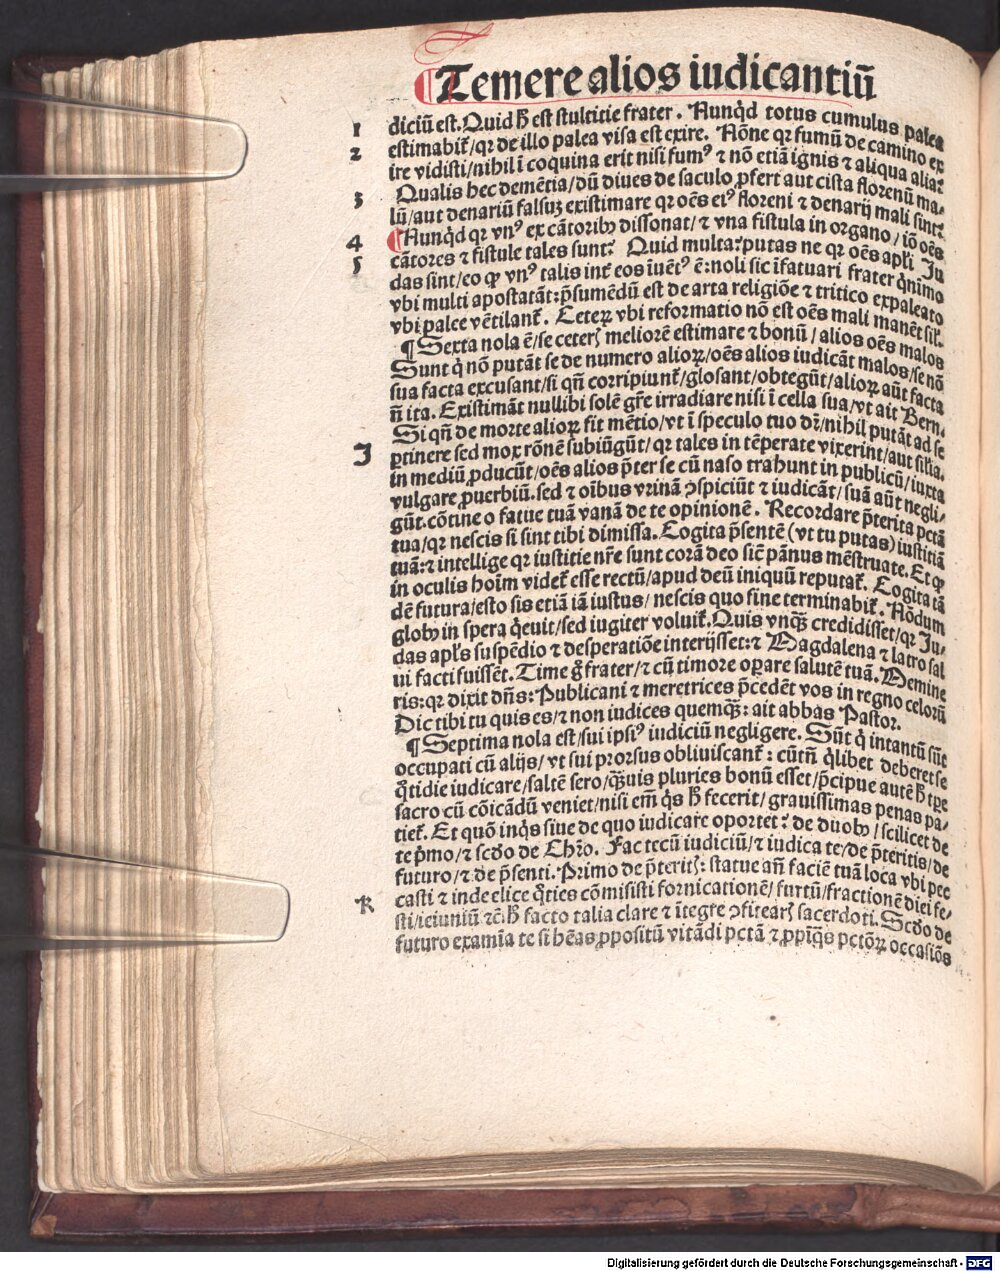 ¶Temere alios iudicantiū
1 diciū est. Quid ħ est stultitie frater. Nunqͥd totus cumulus palea
2 estimabit̄/qr de illo palea visa est exire. Nōne qr fumū de camino ex
ire vidisti/nihil ī coquina erit nisi fumꝰ ⁊ nō etiā ignis ⁊ aliqua alia?
3 Qualis hec demētia/dū diues de saculo ꝓfert aut cista florenū ma-
lū/aut denariū falsuꝫ existimare qr oēs eiꝰ floreni ⁊ denarij mali sint?
4 ¶Nunqͥd qr vnꝰ ex cātoribꝰ dissonat/⁊ vna fistula in organo/iō oēs
5 cātores ⁊ fistule tales sunt? Quid multa? putas ne qr oēs apłi Ju
das sint/eo ꝙ vnꝰ talis int̄ eos īuētꝰ ē: noli sic īfatuari frater qͥnīmo
vbi multi apostatāt: p̄sumēdū est de arta religiōe ⁊ tritico expaleato
vbi palee vētilant̄. Ceterꝝ vbi reformatio nō est oēs mali manēt sił.
¶Sexta nola ē/se ceterꝭ meliorē estimare ⁊ bonū/alios oēs malos
Sunt qͥ nō putāt se de numero alioꝝ/oēs alios iudicāt malos/se nō
sua facta excusant/si qn̄ corripiunt̄/glosant/obtegūt/alioꝝ aūt facta
n̄ ita. Existimāt nullibi solē gr̄e irradiare nisi ī cella sua/vt ait Bern.
Si qn̄ de morte alioꝝ fit mētio/vt ī speculo tuo dr̄/nihil putāt ad se
J ꝑtinere sed mox rōnē subiūgūt/qr tales in tēperate vixerint/aut siłia.
in mediū ꝓducūt/oēs alios p̄ter se cū naso trahunt in publicū/iuxta
vulgare ꝓuerbiū. sed ⁊ oībus vrinā ꝯspiciūt ⁊ iudicāt/suā aūt negli-
gūt. cōtine o fatue tuā vanā de te opinionē. Recordare p̄terita pctā
tua/qr nescis si sint tibi dimissa. Cogita p̄sentē (vt tu putas) iustitiā
tuā: ⁊ intellige qr iustitie nr̄e sunt corā deo sic̄ pānus mēstruate. Et ꝙ
in oculis hoīm videt̄ esse rectū/apud deū iniquū reputat̄. Cogita tā
dē futura/esto sis etiā iā iustus/nescis quo fine terminabit̄. Nōdum
globꝰ in spera qͥeuit/sed iugiter voluit̄. Quis vnqꝫ credidisset/qr Ju-
das apłs suspēdio ⁊ desperatiōe interijsset: ⁊ Magdalena ⁊ latro sal
ui facti fuissēt. Time g̊ frater/⁊ cū timore oꝑare salutē tuā. Demine
ris: qr dixit dn̄s: Publicani ⁊ meretrices p̄cedēt vos in regno celorū
Dic tibi tu quis es/⁊ non iudices quemqꝫ: ait abbas Pastor.
¶Septima nola est/sui ipsiꝰ iudiciū negligere. Sūt qͥ intantū sūt
occupati cū alijs/vt sui prorsus obliuiscant̄: cūtn̄ qͥlibet deberet se
qͦtidie iudicare/saltē sero/qꝫuis pluries bonū esset/p̄cipue autē ħ tꝑe
sacro cū cōicādū veniet/nisi em̄ qͥs ħ fecerit/grauissimas penas pa-
tiet̄. Et quō inqͥs siue de quo iudicare oportet? de duobꝰ/scilicet de
te pͥmo/⁊ scďo de Chr̄o. Fac tecū iudiciū/⁊ iudica te/de p̄teritis/de
futuro/⁊ de p̄senti. Primo de p̄teritꝭ: statue an̄ faciē tuā loca vbi pec
K casti ⁊ inde elice qͦties cōmisisti fornicationē/furtū/fractionē diei fe-
sti/ieiuniū ⁊c̄. ħ facto talia clare ⁊ ītegre ꝯfitearꝭ sacerdoti. Scďo de
futuro examīa te si hēas ꝓpositū vitādi pctā ⁊ ꝓpīqͣs pctōꝝ occasiōs
Digitalisierung gefördert durch die Deutsche Forschungsgemeinschaft - DFG